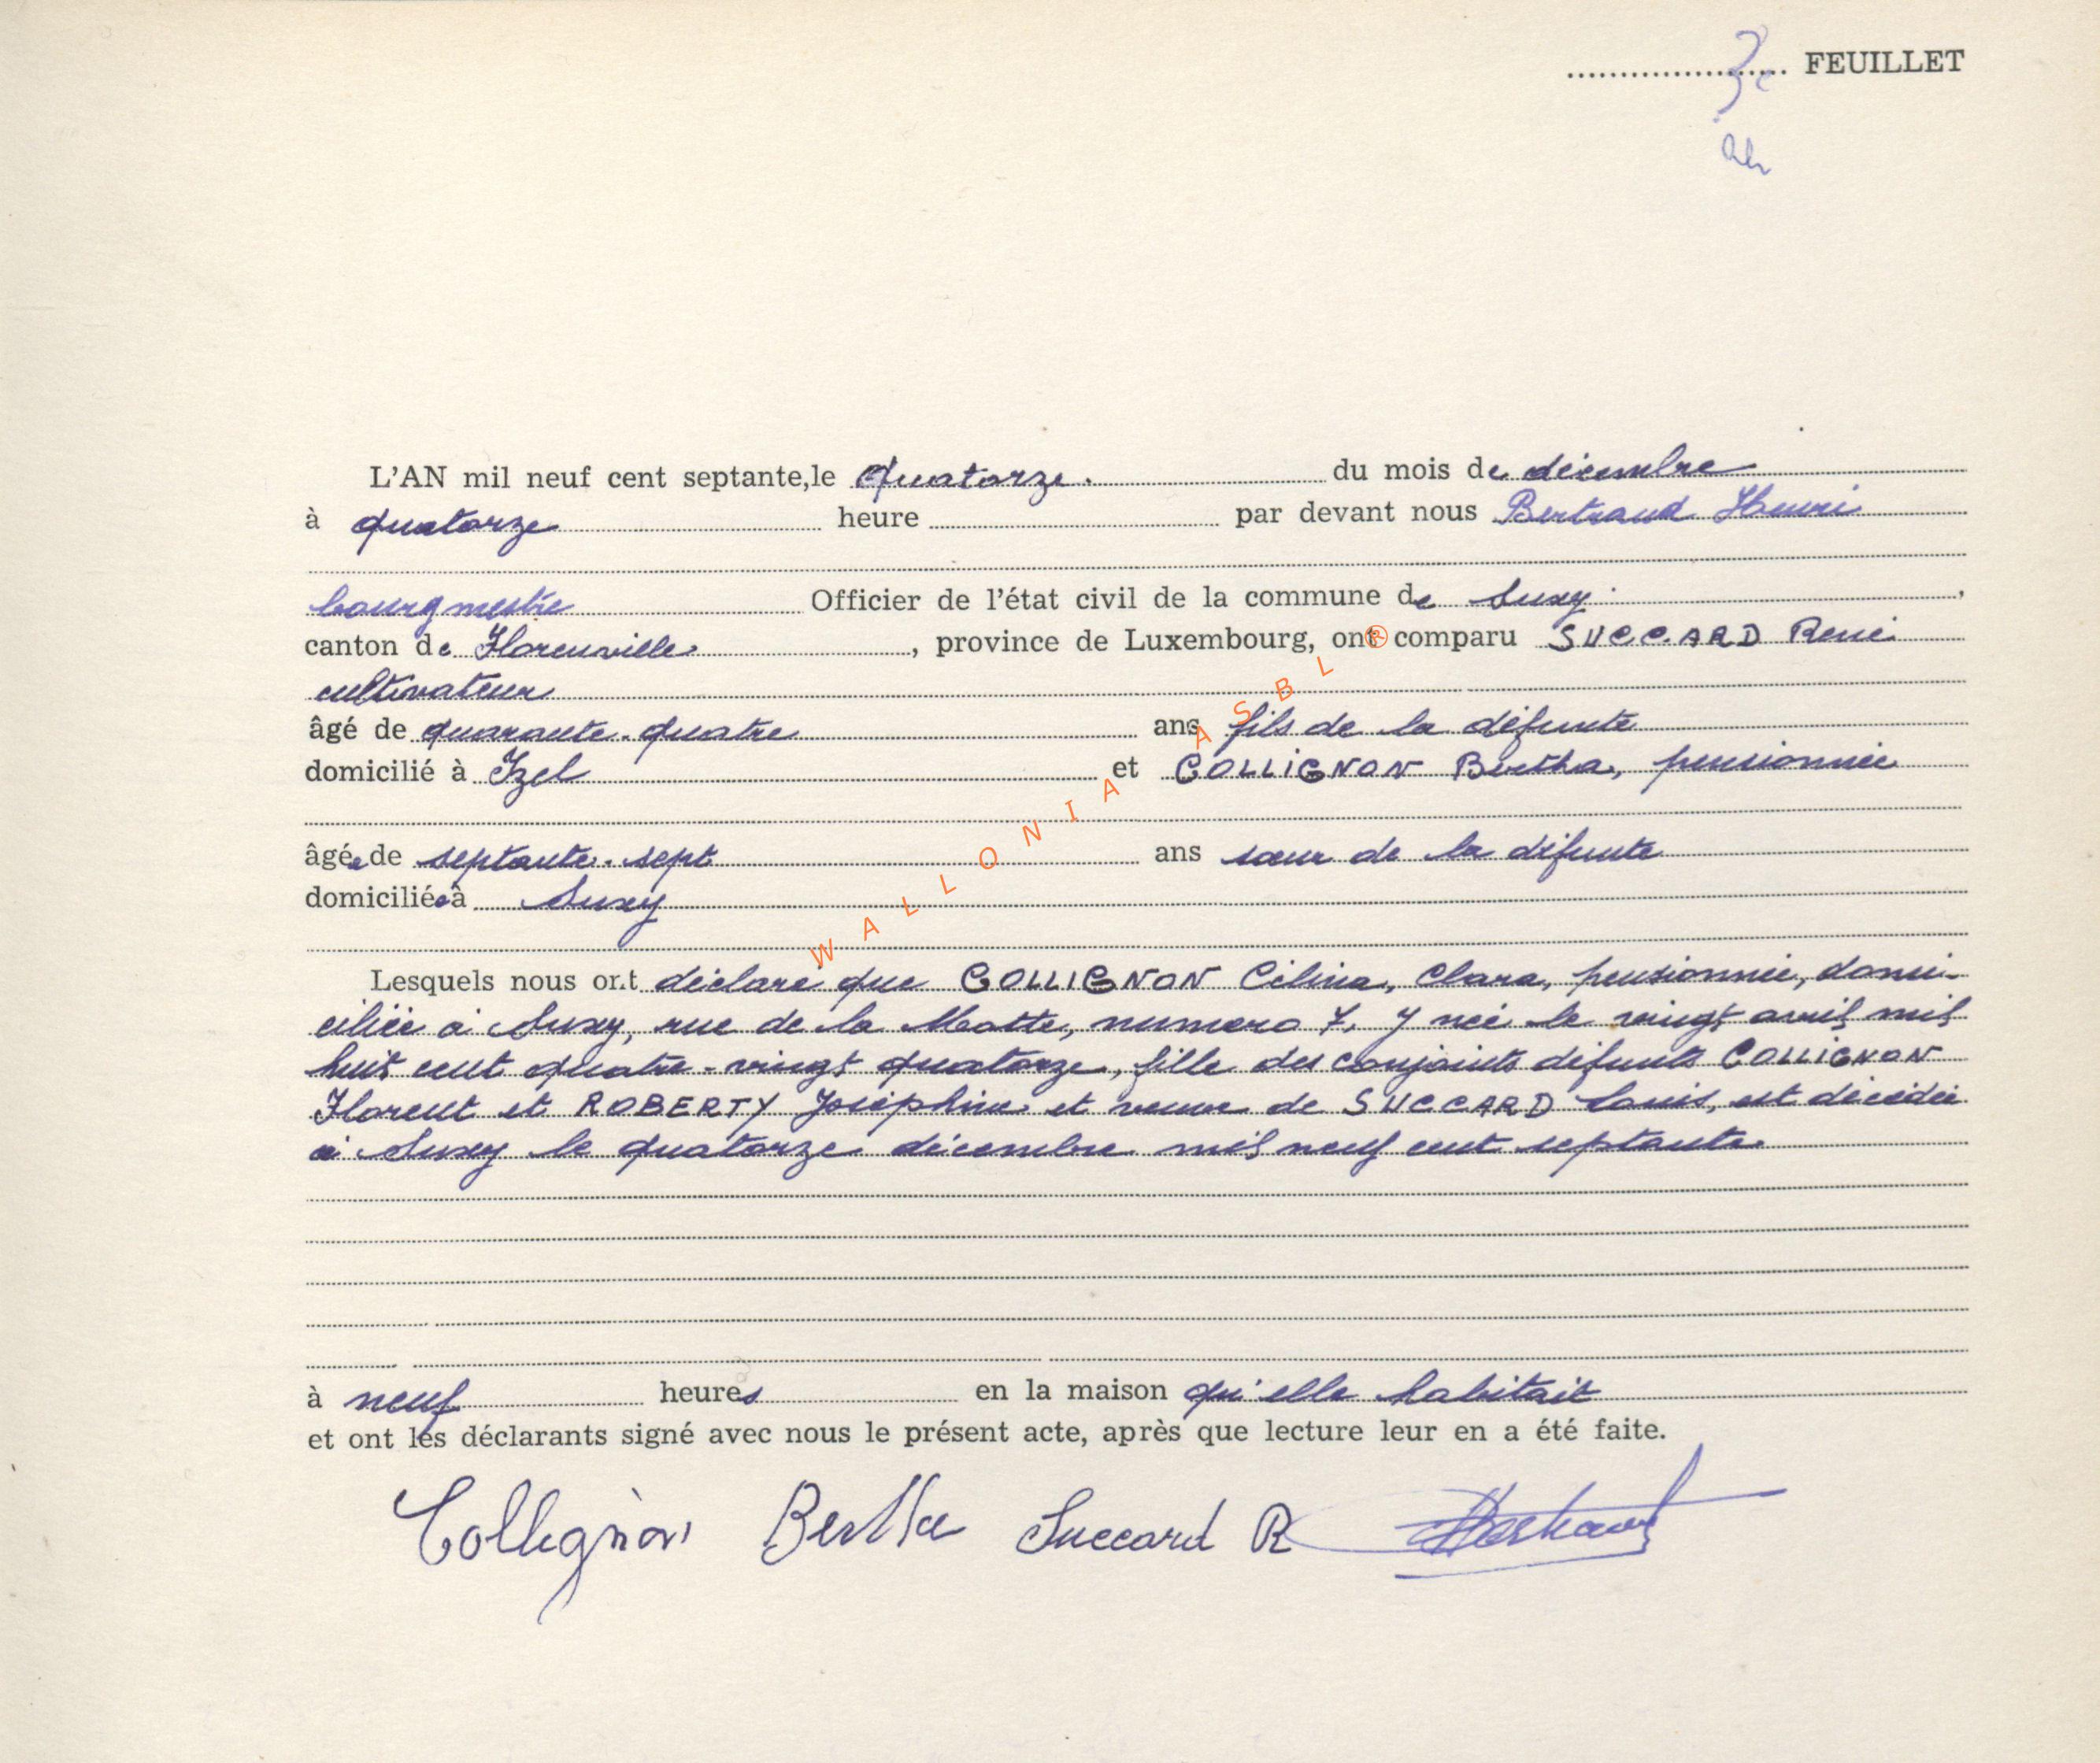 3e FEUILLET
L'AN mil neuf cent septante, le quatorze. du mois de décembre
à quatorze heure par devant nous Bertrand Henri
bourgmestre Officier de l'état civil de la commune de Suxy,
canton de Florenville, province de Luxembourg, ont comparu SUCCARD René
cultivateur
âgé de quarante-quatre ans fils de la défunte
domicilié à Izel et COLLIGNON Bertha, pensionnée
âgée de septante-sept ans sœur de la défunte
domiciliée à Suxy
Lesquels nous ont déclaré que COLLIGNON Célina, Clara, pensionnée, domi-
ciliée à Suxy, rue de la Motte, numéro 7, y née le vingt avril mil
huit cent quatre-vingt quatorze, fille des conjoints défunts COLLIGNON
Florent et ROBERTY Joséphine et veuve de SUCCARD Louis, est décédée
à Suxy le quatorze décembre mil neuf cent septante.
à neuf heures en la maison qu'elle habitait
et ont les déclarants signé avec nous le présent acte, après que lecture leur en a été faite.
Collignon Bertha Succard R HBertrand
WALLONIA ASBL ®